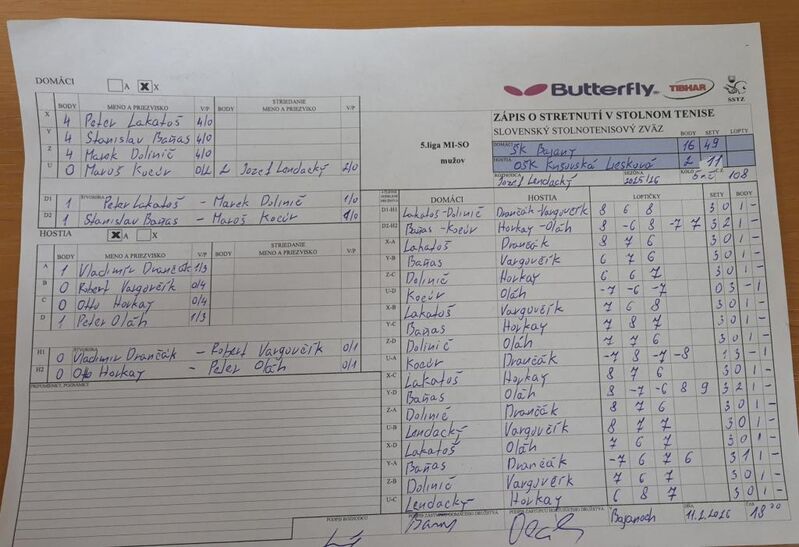 DOMÁCI A X X
BODY MENO A PRIEZVISKO V/P BODY STRIEDANIE MENO A PRIEZVISKO V/P
X 4 Peter Lakatoš 4/0
Y 4 Stanislav Baňas 4/0
Z 4 Marek Dolinič 4/0
U 0 Maroš Kocúr 0/2 2 Jozef Lendacký 2/0
D1 1 ŠTVORHRA Peter Lakatoš - Marek Dolinič 1/0
D2 1 Stanislav Baňas - Maroš Kocúr 1/0
HOSTIA X A X
BODY MENO A PRIEZVISKO V/P BODY STRIEDANIE MENO A PRIEZVISKO V/P
A 1 Vladimír Drančák 1/3
B 0 Robert Vargovčík 0/4
C 0 Otto Horkay 0/4
D 1 Peter Oláh 1/3
H1 0 ŠTVORHRA Vladimír Drančák - Robert Vargovčík 0/1
H2 0 Otto Horkay - Peter Oláh 0/1
PRIPOMIENKY, POZNÁMKY
PODPIS ROZHODCU
Butterfly TIBHAR SSTZ
5.liga MI-SO mužov
ZÁPIS O STRETNUTÍ V STOLNOM TENISE
SLOVENSKÝ STOLNOTENISOVÝ ZVÄZ
DOMÁCI ŠK Bajany BODY 16 SETY 49 LOPTY
HOSTIA OŠK Kusovská Liesková 2 11
ROZHODCA Jozef Lendacký SEZÓNA 2025/26 KOLO č. 108
DOMÁCI HOSTIA LOPTIČKY SETY BODY
D1-H1 Lakatoš-Dolinič Drančák-Vargovčík 8 6 8 3 0 1 -
D2-H2 Baňas-Kocúr Horkay-Oláh 8 -6 8 -7 7 3 2 1 -
X-A Lakatoš Drančák 8 7 6 3 0 1 -
Y-B Baňas Vargovčík 6 7 6 3 0 1 -
Z-C Dolinič Horkay 6 6 7 3 0 1 -
U-D Kocúr Oláh -7 -6 -7 0 3 - 1
X-B Lakatoš Vargovčík 7 6 8 3 0 1 -
Y-C Baňas Horkay 7 8 7 3 0 1 -
Z-D Dolinič Oláh 7 7 6 3 0 1 -
U-A Kocúr Drančák -7 8 -7 -8 1 3 - 1
X-C Lakatoš Horkay 8 7 6 3 0 1 -
Y-D Baňas Oláh 8 -7 -6 8 9 3 2 1 -
Z-A Dolinič Drančák 8 7 6 3 0 1 -
U-B Lendacký Vargovčík 8 7 7 3 0 1 -
X-D Lakatoš Oláh 7 6 7 3 0 1 -
Y-A Baňas Drančák -7 6 7 6 3 1 1 -
Z-B Dolinič Vargovčík 7 6 7 3 0 1 -
U-C Lendacký Horkay 6 8 7 3 0 1 -
PODPIS ZÁSTUPCU DOMÁCEHO DRUŽSTVA PODPIS ZÁSTUPCU HOSŤUJÚCEHO DRUŽSTVA V Bajanoch DŇA ČAS